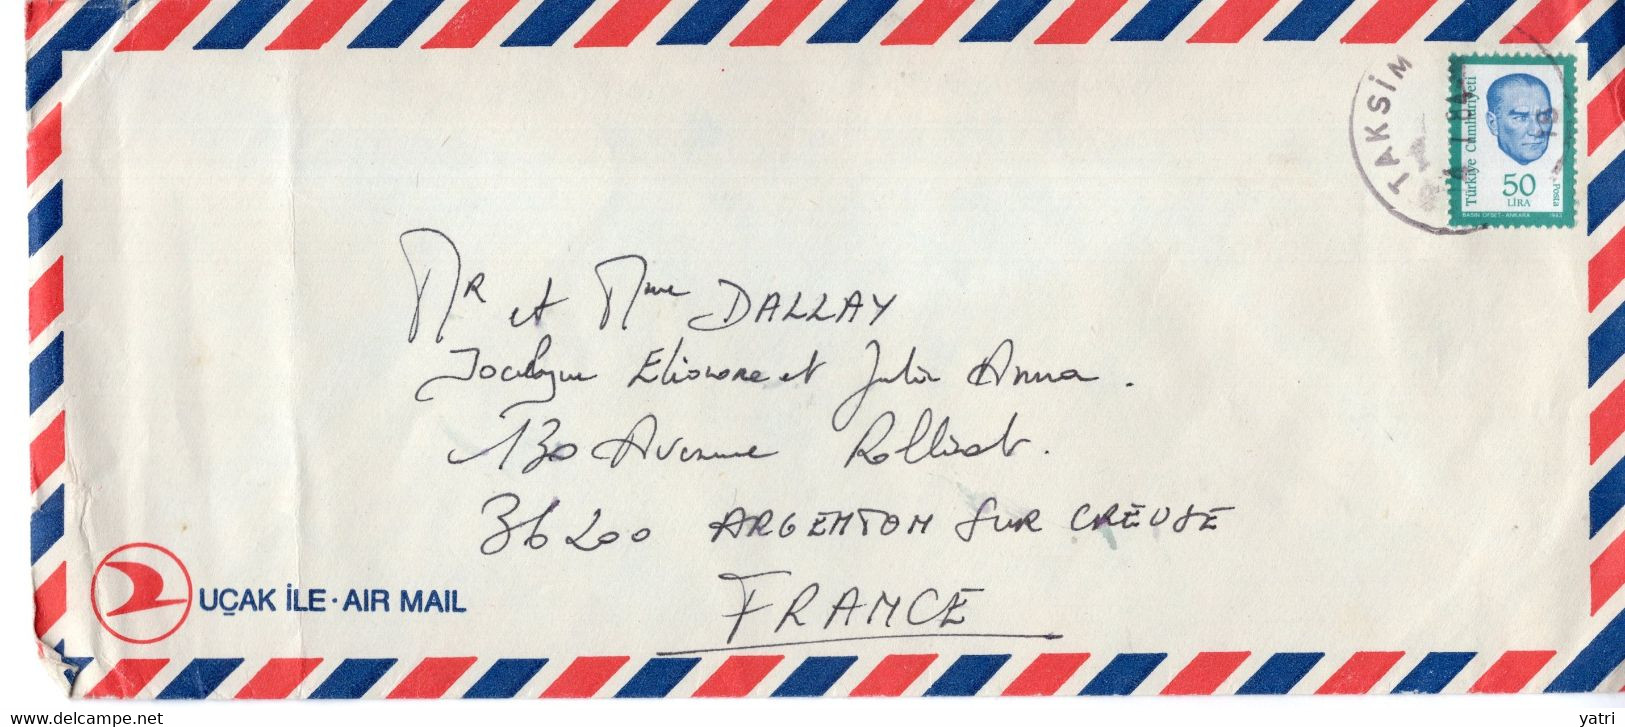 TAKSİM
Türkiye Cumhuriyeti
50
LİRA
Posta
BASIN OFSET - ANKARA 1983
Mr et Mme DALLAY
Jocelyne Elionore et Julie Anna.
130 Avenue Rollinat.
36200 ARGENTON SUR CREUSE
FRANCE
UÇAK İLE · AIR MAIL
www.delcampe.net
yatri